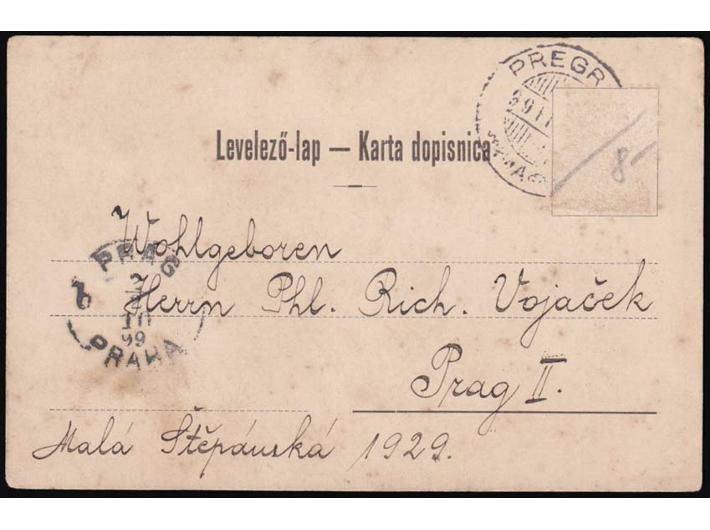 PREGR
Levelező-lap — Karta dopisnica
8-
Wohlgeboren
PRAG
Herrn Phl. Rich. Vojaček
III
99
PRAHA
Prag II.
Malá Štěpánská 1929.